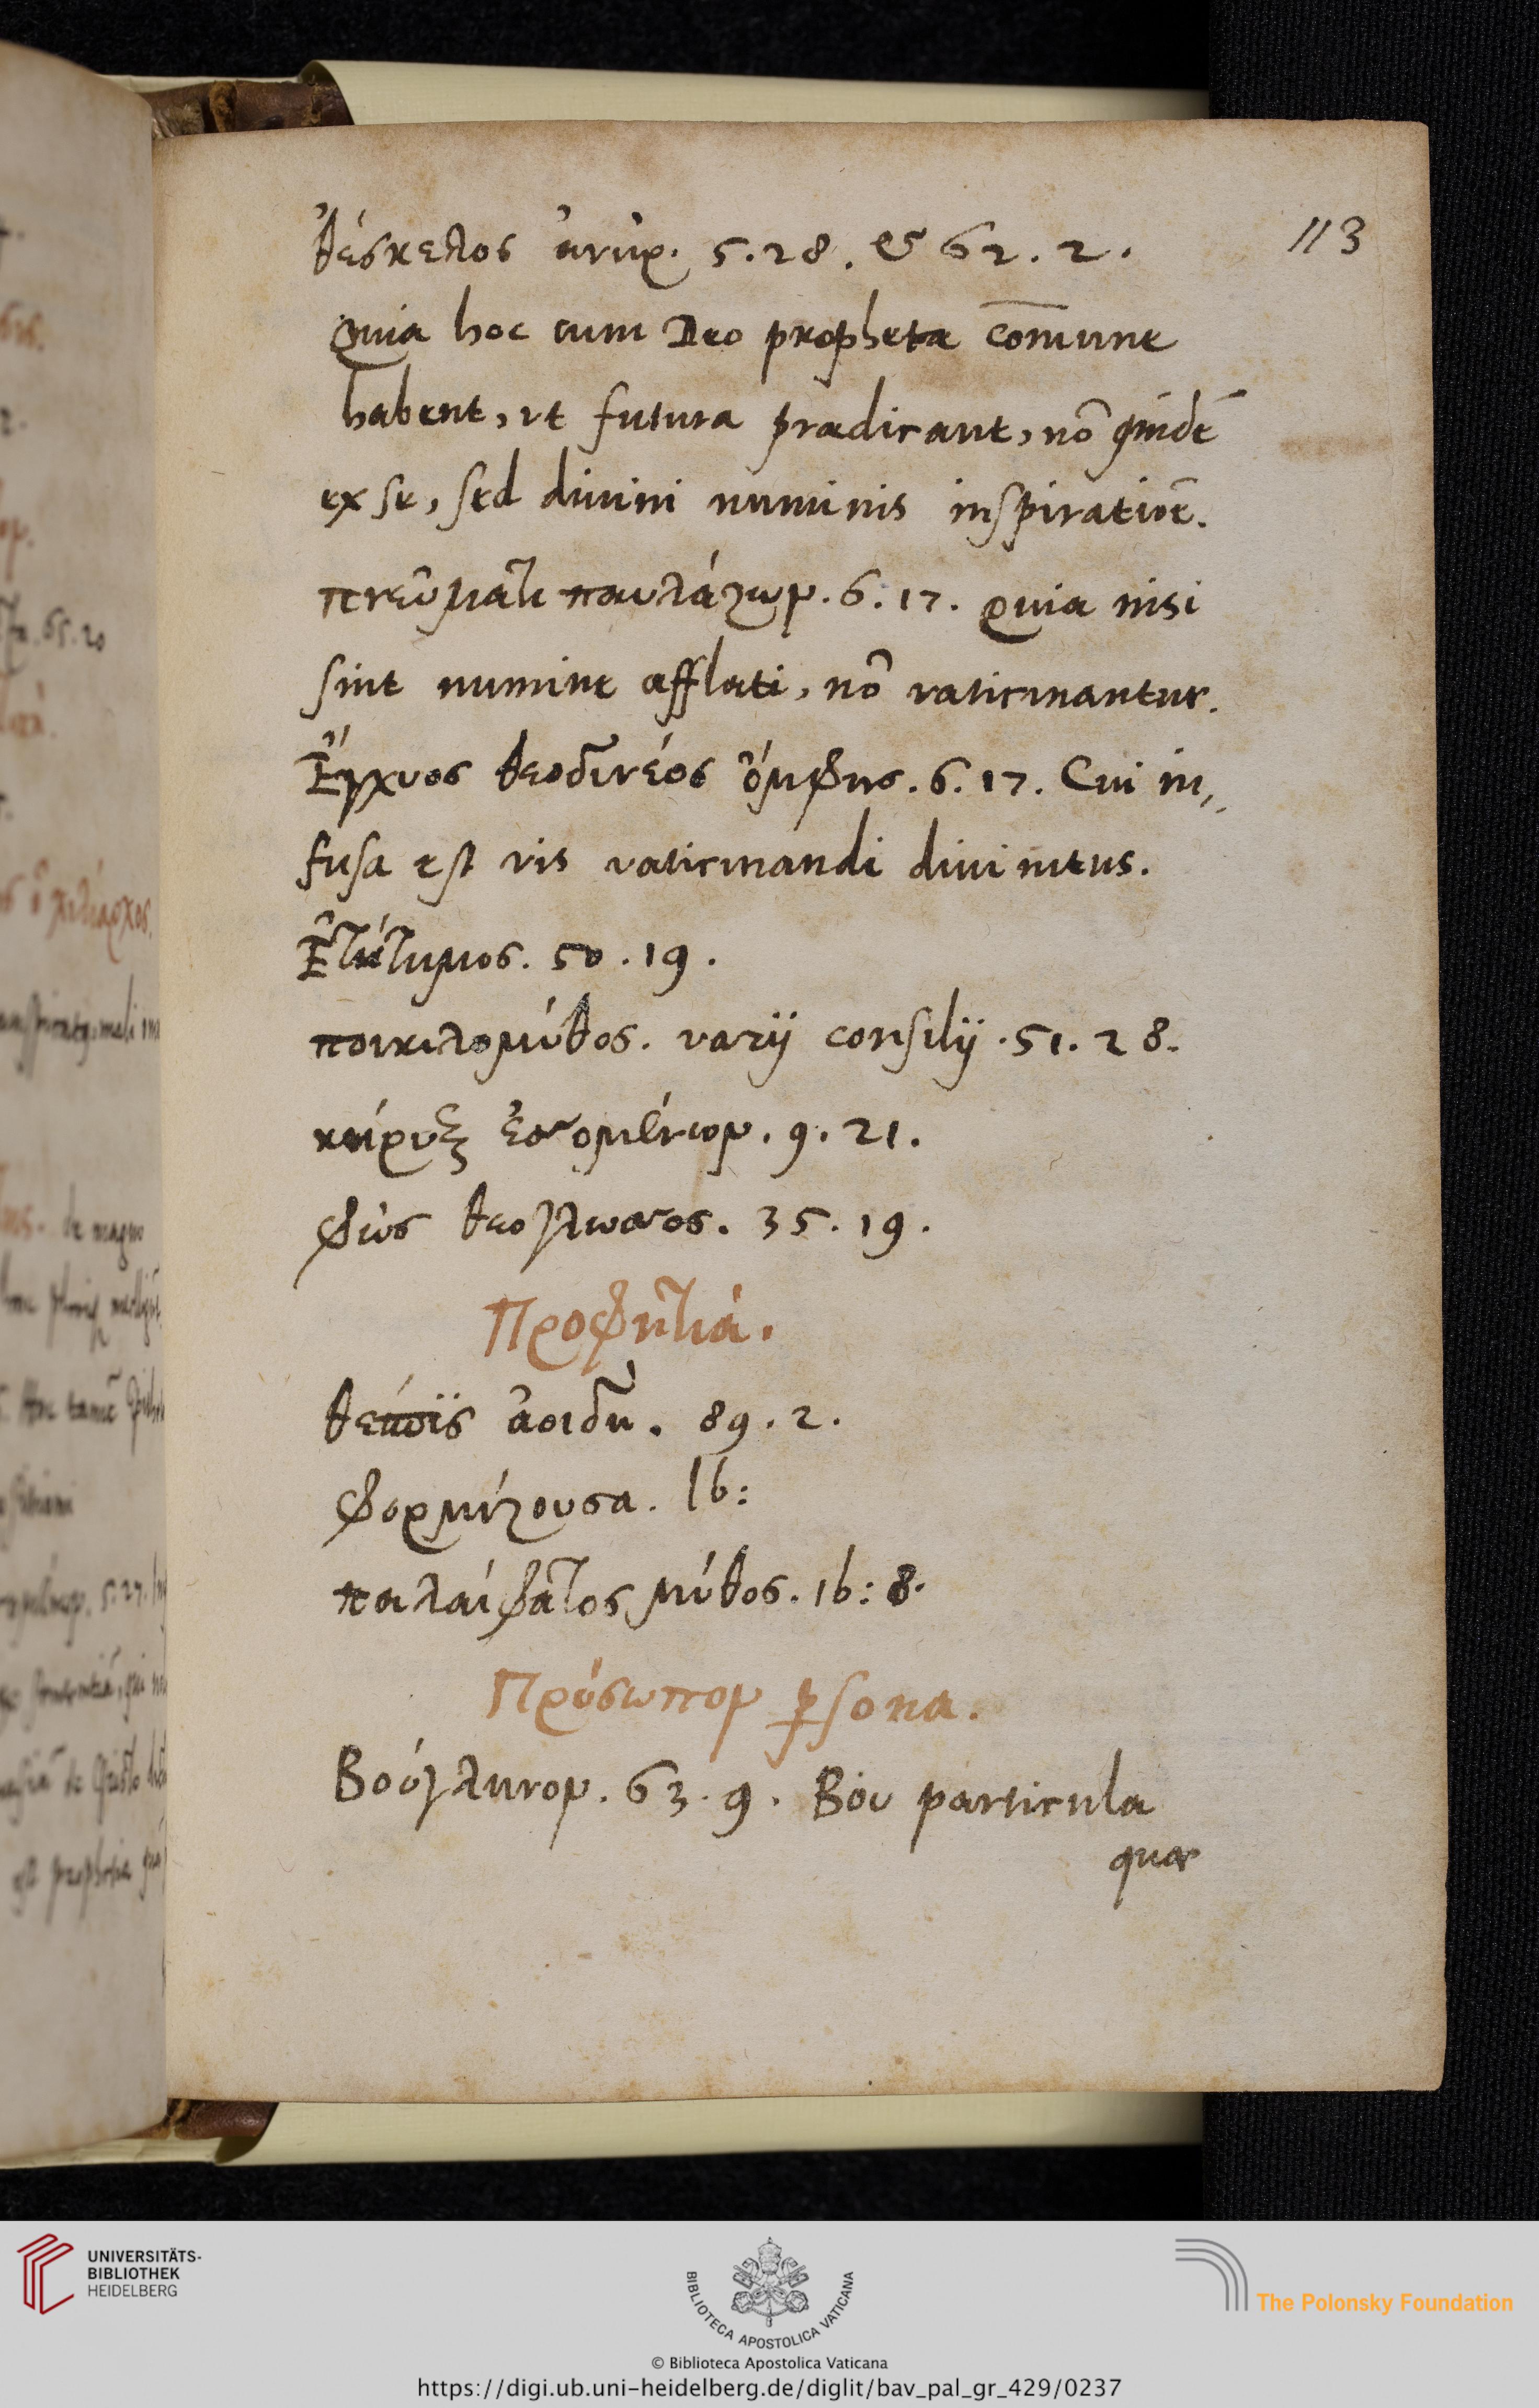 113
θέσκελος ἀνήρ. 5. 28. & 62. 2.
Quia hoc cum Deo prophetæ com̄une
habent, ut futura prædicant, nō quidē
ex se, sed diuini numinis inspiratiōe.
πνεύματι παυλάζων. 6. 17. Quia nisi
sint numine afflati, nō vaticinantur.
Ἔγχυος θεοδινέος ὄμφης. 6. 17. Cui in,,
fusa est vis vaticinandi divinitus.
Ἐτήτυμος. 50. 19.
ποικιλομύθος. varij consilij. 51. 28.
κήρυξ ἐσσομένων. 9. 21.
φὼς θεογλωσσος. 35. 19.
Προφητιά.
ἀοιδή. 89. 2.
φορμίζουσα. Ib:
παλαίφατος μύθος. ib: 8.
Πρόσωπον ꝑsona.
Βούγληνον. 63. 9. Βου particula
quæ
UNIVERSITÄTS-
BIBLIOTHEK
HEIDELBERG
BIBLIOTECA APOSTOLICA VATICANA
The Polonsky Foundation
© Biblioteca Apostolica Vaticana
https://digi.ub.uni-heidelberg.de/diglit/bav_pal_gr_429/0237